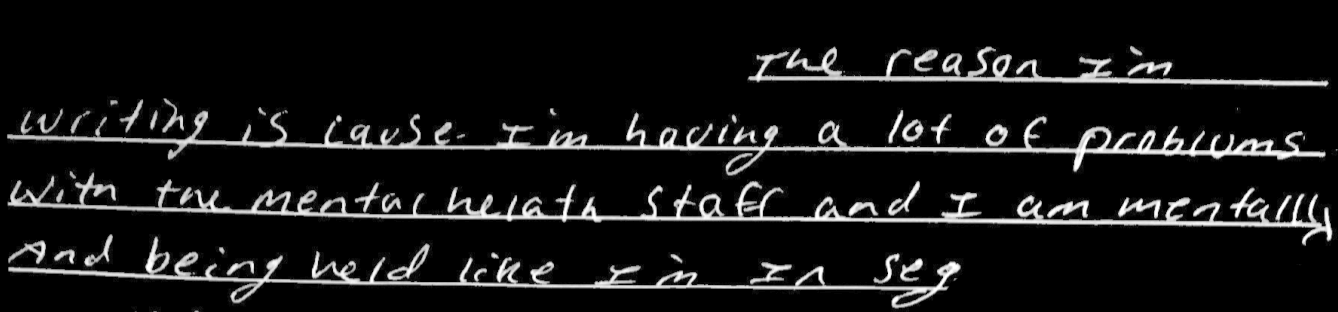 The reason I'm
writing is cause I'm having a lot of problums
with the mental helath staff and I am mentally
And being held like I'm In seg